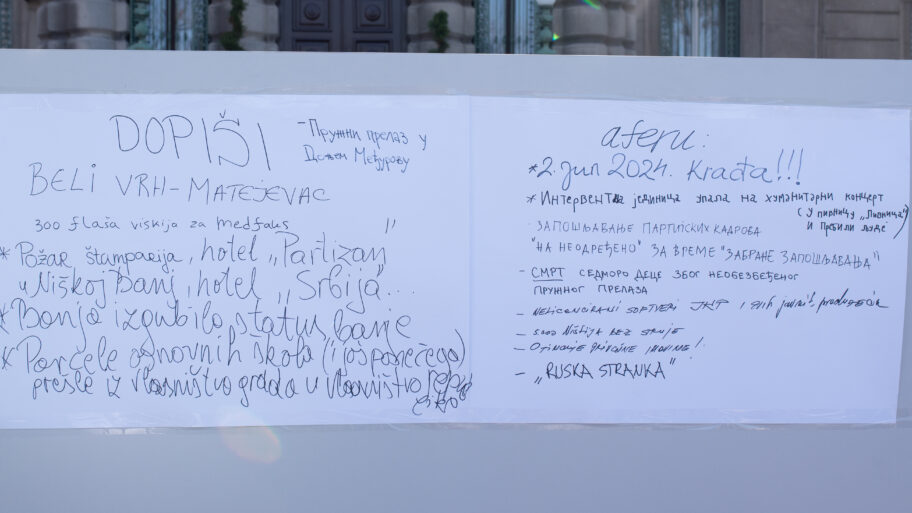 DOPIŠI
-Пружни прелаз у
Доњем Међурову
BELI VRH-MATEJEVAC
300 flaša viskija za medfaks
* Požar štamparija, hotel „Partizan"
u Niškoj Banji, hotel „Srbija...
* Banja izgubila status banje
* Parcele osnovnih škola (i još ponečega)
prešle iz vlasništvo grada u vlasništvo
aferu:
*2. јун 2024. Krađa!!!
* Интервентна јединица упала на хуманитарни концерт
(у пивницу „Пивница"
и пребили људе)
- ЗАПОШЉАВАЊЕ ПАРТИЈСКИХ КАДРОВА
"НА НЕОДРЕЂЕНО" ЗА ВРЕМЕ "ЗАБРАНЕ ЗАПОШЉАВАЊА"
- СМРТ СЕДМОРО ДЕЦЕ ЗБОГ НЕОБЕЗБЕЂЕНОГ
ПРУЖНОГ ПРЕЛАЗА
- NELICENCIRANI SOFTVERI JKP i
- 5000 NIŠLIJA BEZ STRUJE
- OTIMANJE IMOVINE!
- „RUSKA STRANKA"